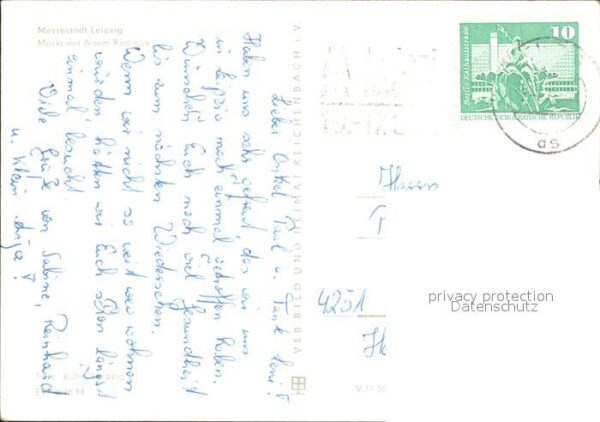 Messestadt Leipzig
Markt mit Altem Rathaus
Liebe Onkel Paul u. Tante Leni!
Haben uns sehr gefreut, das wir uns
in Leipzig noch einmal getroffen haben.
Wünschen Euch noch viel Gesundheit
bis zum nächsten Wiedersehen.
Wenn wir nicht so weit weg wohnen
würden hätten wir Euch schon längst
einmal besucht
Viele Grüße von Sabine, Reinhard
u. Klein
VEB BILD UND HEIMAT REICHENBACH i. V.
10
Berlin, Rathausstraße
DEUTSCHE DEMOKRATISCHE REPUBLIK
Herrn
4251
privacy protection
Datenschutz